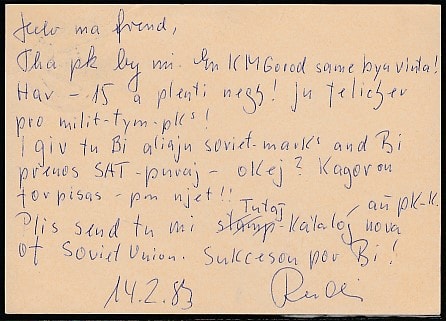 Helo ma frend,
Tha pk by mi. En KMGorod same bya vinta!
Hav - 15 a plenti negh! ju telicher
pro milit-tym-pks!
I giv tu Bi aliaju soviet-marks and Bi
prenos SAT-puraj - okej? Kagoron
forpisas - pm njet!!
Plis send tu mi Tutaj -Katalog nova añ pk-K.
of Soviet Union. Sukceson por Bi!
14.2.83